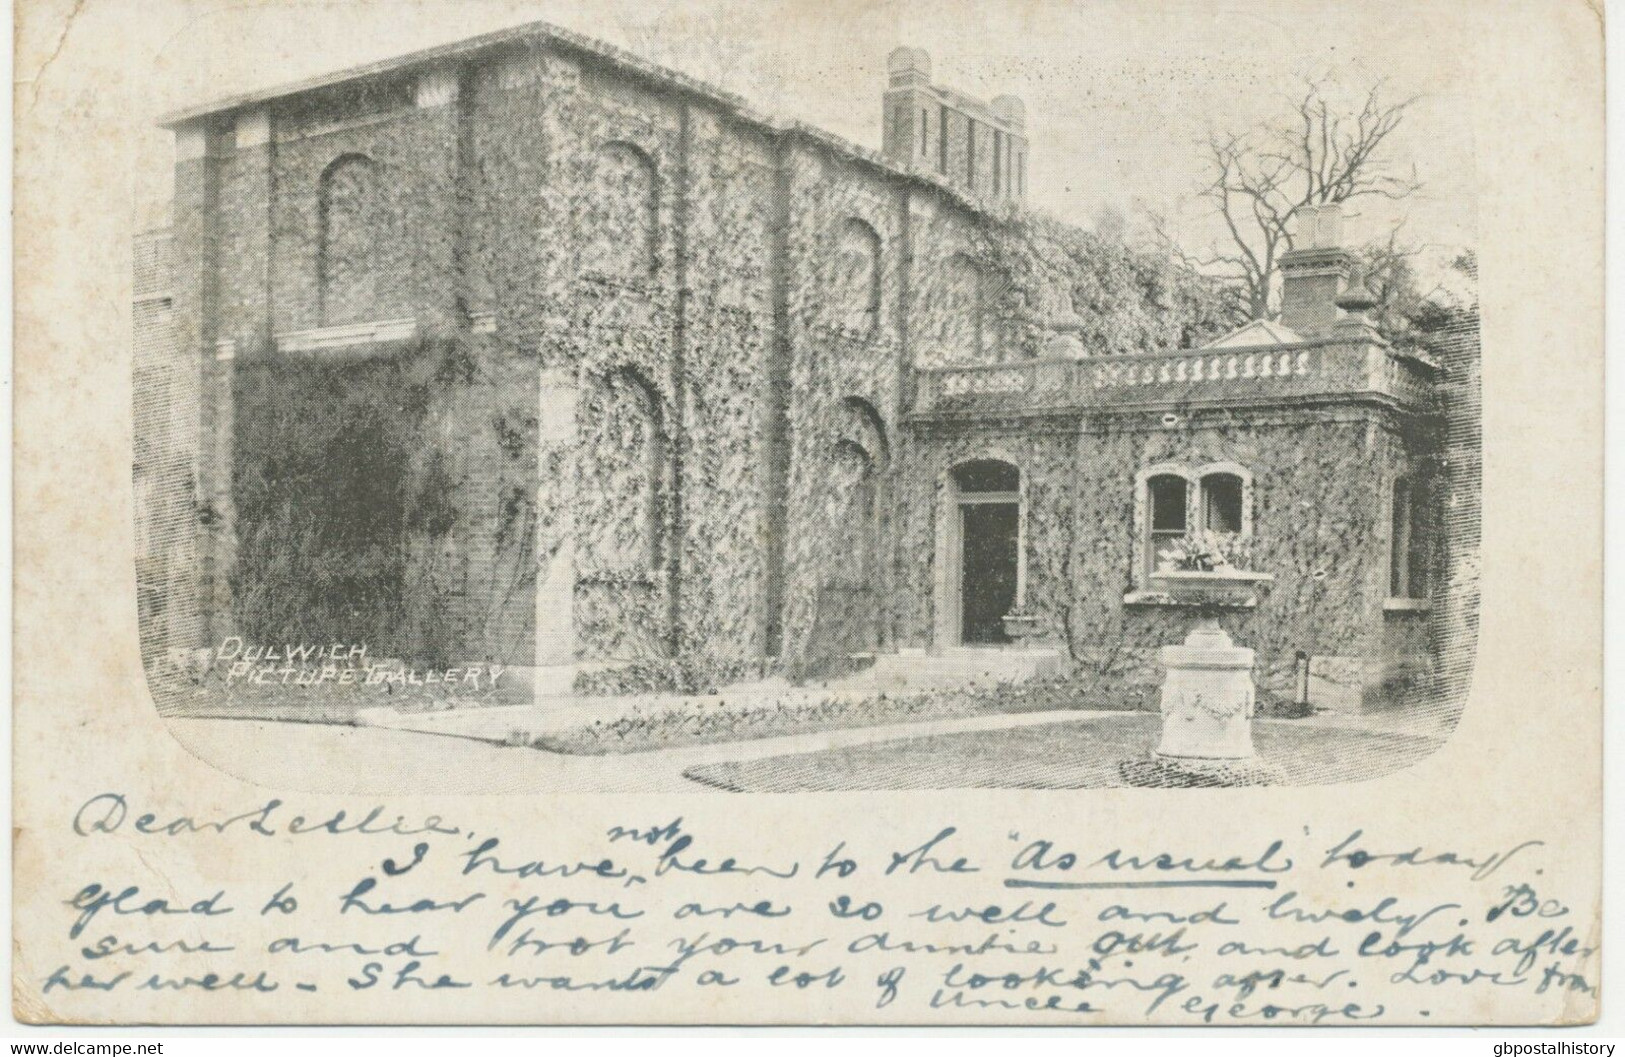 DULWICH
PICTURE GALLERY
Dear Leslie,
not
I have been to the "As usual" today.
Glad to hear you are so well and lively. Be
sure and trot your auntie out, and look after
her well - She wants a lot of looking after. Love from
Uncle George.
www.delcampe.net
gbpostalhistory